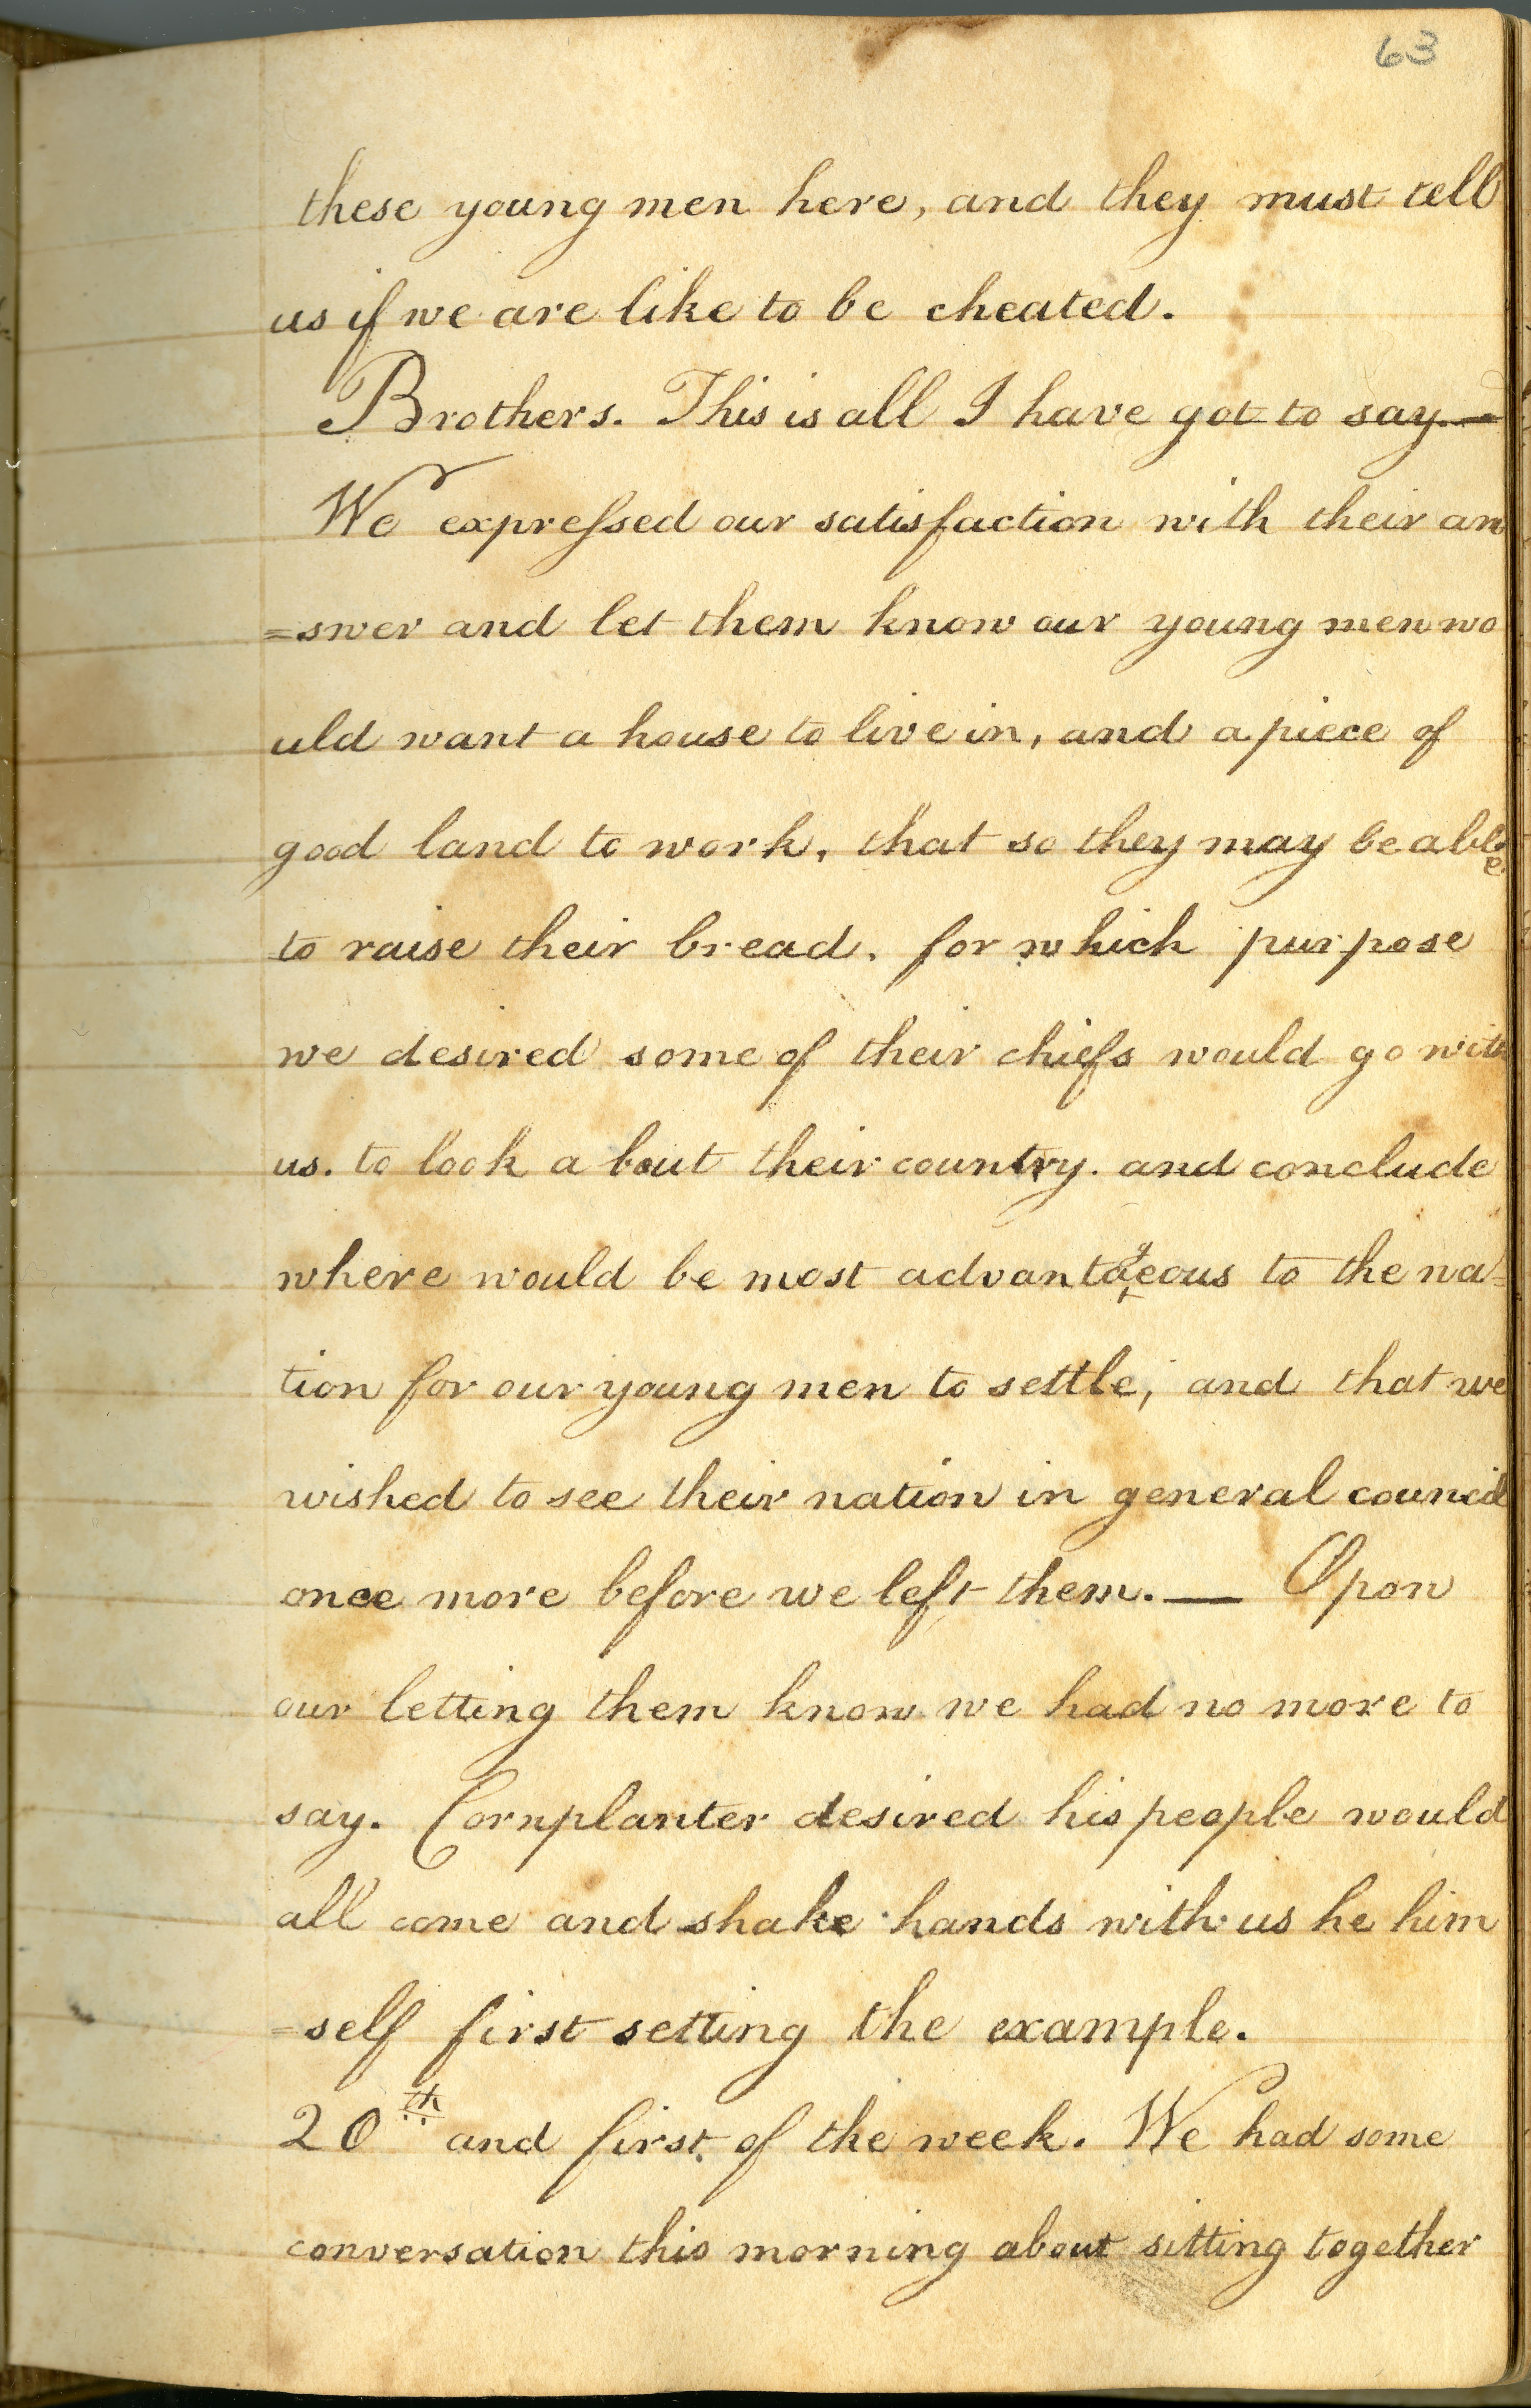 63
these young men here, and they must tell
us if we are like to be cheated.
Brothers. This is all I have got to say.—
We expressed our satisfaction with their an
=swer and let them know our young men wo
uld want a house to live in, and a piece of
good land to work, that so they may be able
to raise their bread. for which purpose
we desired some of their chiefs would go with
us. to look a bout their country. and conclude
where would be most advantageous to the na=
tion for our young men to settle; and that we
wished to see their nation in general council
once more before we left them.— Upon
our letting them know we had no more to
say. Cornplanter desired his people would
all come and shake hands with us he him
=self first setting the example.
20th and first of the week. We had some
conversation this morning about sitting together